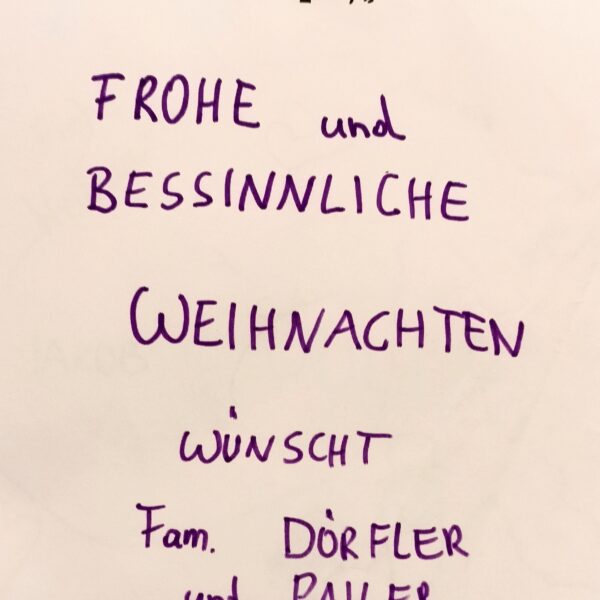 FROHE und
BESSINNLICHE
WEIHNACHTEN
WÜNSCHT
Fam. DÖRFLER
und